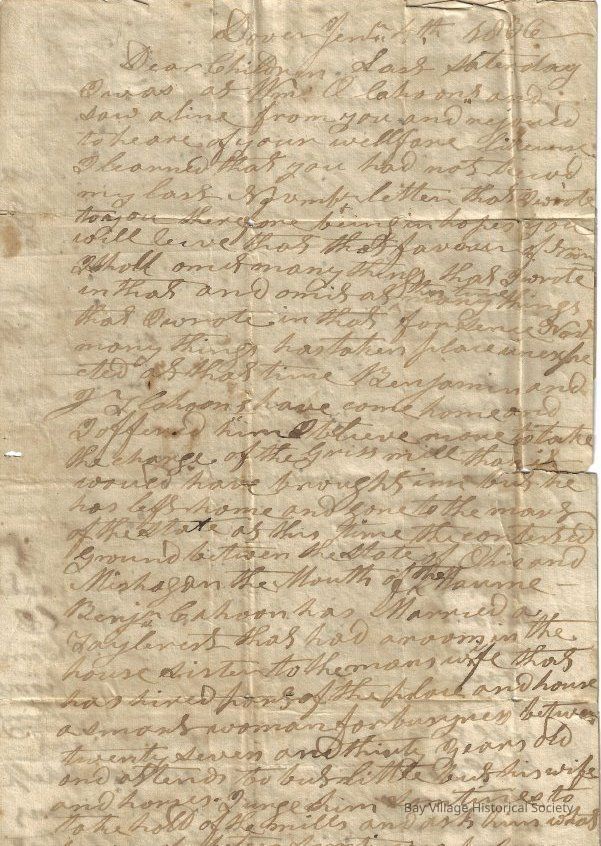 Dover Jenu 4th 1836
Dear Children Last Saturday
I was at Wm O Cahoons and
saw a line from you and rejoised
to heare of your wellfare Likewise
I learned that you had not received
my last letter that I wrote
to you therefore being in hopes you
will receive that favour
I shall omit many things that I wrote
in that and omit as many things
that I wrote in that for sence
many things has taken place unexpe
cted at that time Benjamin and
Cahoons have come home and
I offered him I believe more to take
the charge of the Griss mill than it
would have brought in but he
has left home and gone to the
of the State at this time the contested
ground between the State of Ohio and
Michagan the Mouth of the Maume
Benjn Cahoon has Married a
that had a room in the
house sister to the mans wife that
has hired part of the place and house
a smart woman for buisness between
twenty seven and thirty years old
and attends to but little but his wife
and horses I urge him at times to
take hold of the mills and ask him what
Bay Village Historical Society